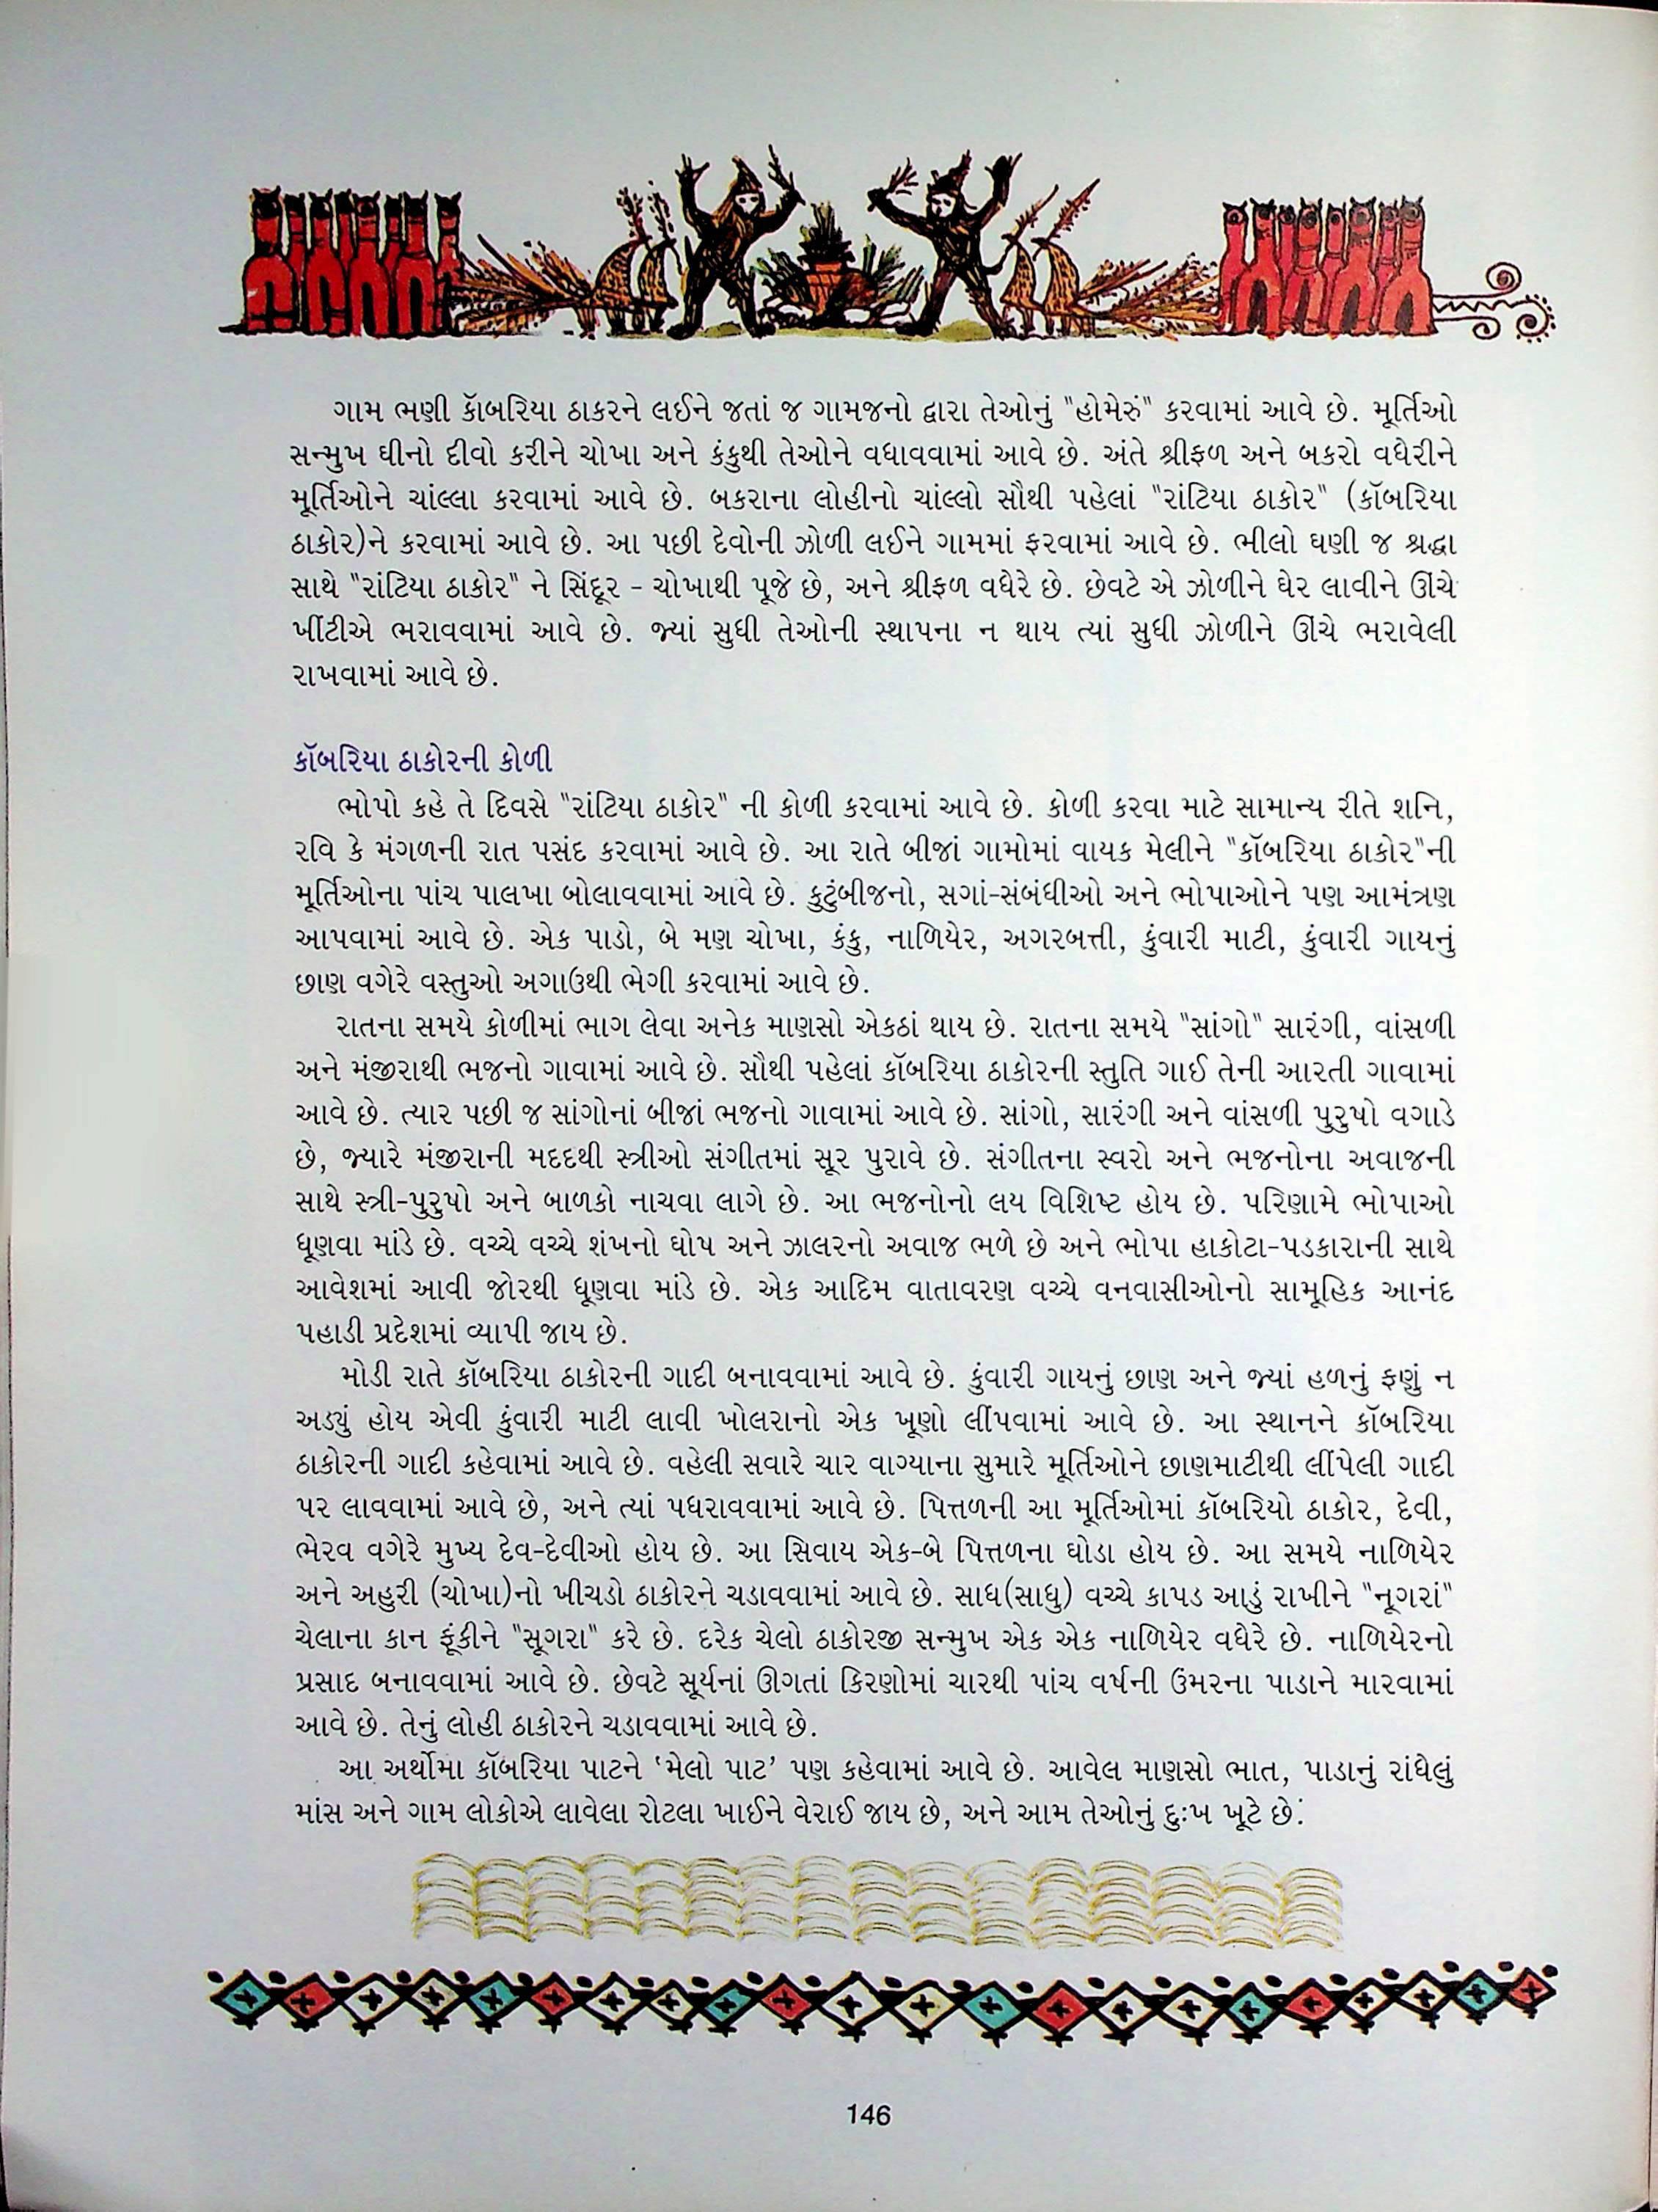 ગામ ભણી કૉબરિયા ઠાકરને લઈને જતાં જ ગામજનો દ્વારા તેઓનું "હોમેરું" કરવામાં આવે છે. મૂર્તિઓ
સન્મુખ ઘીનો દીવો કરીને ચોખા અને કંકુથી તેઓને વધાવવામાં આવે છે. અંતે શ્રીફળ અને બકરો વધેરીને
મૂર્તિઓને ચાંલ્લા કરવામાં આવે છે. બકરાના લોહીનો ચાંલ્લો સૌથી પહેલાં "રાંટિયા ઠાકોર" (કૉબરિયા
ઠાકોર)ને કરવામાં આવે છે. આ પછી દેવોની ઝોળી લઈને ગામમાં ફરવામાં આવે છે. ભીલો ઘણી જ શ્રદ્ધા
સાથે "રાંટિયા ઠાકોર" ને સિંદૂર - ચોખાથી પૂજે છે, અને શ્રીફળ વધેરે છે. છેવટે એ ઝોળીને ઘેર લાવીને ઊંચે
ખીંટીએ ભરાવવામાં આવે છે. જ્યાં સુધી તેઓની સ્થાપના ન થાય ત્યાં સુધી ઝોળીને ઊંચે ભરાવેલી
રાખવામાં આવે છે.
કૉબરિયા ઠાકોરની કોળી
ભોપો કહે તે દિવસે "રાંટિયા ઠાકોર" ની કોળી કરવામાં આવે છે. કોળી કરવા માટે સામાન્ય રીતે શનિ,
રવિ કે મંગળની રાત પસંદ કરવામાં આવે છે. આ રાતે બીજાં ગામોમાં વાયક મેલીને "કૉબરિયા ઠાકોર"ની
મૂર્તિઓના પાંચ પાલખા બોલાવવામાં આવે છે. કુટુંબીજનો, સગાં-સંબંધીઓ અને ભોપાઓને પણ આમંત્રણ
આપવામાં આવે છે. એક પાડો, બે મણ ચોખા, કંકુ, નાળિયેર, અગરબત્તી, કુંવારી માટી, કુંવારી ગાયનું
છાણ વગેરે વસ્તુઓ અગાઉથી ભેગી કરવામાં આવે છે.
રાતના સમયે કોળીમાં ભાગ લેવા અનેક માણસો એકઠાં થાય છે. રાતના સમયે "સાંગો" સારંગી, વાંસળી
અને મંજીરાથી ભજનો ગાવામાં આવે છે. સૌથી પહેલાં કૉબરિયા ઠાકોરની સ્તુતિ ગાઈ તેની આરતી ગાવામાં
આવે છે. ત્યાર પછી જ સાંગોનાં બીજાં ભજનો ગાવામાં આવે છે. સાંગો, સારંગી અને વાંસળી પુરુષો વગાડે
છે, જ્યારે મંજીરાની મદદથી સ્ત્રીઓ સંગીતમાં સૂર પુરાવે છે. સંગીતના સ્વરો અને ભજનોના અવાજની
સાથે સ્ત્રી-પુરુષો અને બાળકો નાચવા લાગે છે. આ ભજનોનો લય વિશિષ્ટ હોય છે. પરિણામે ભોપાઓ
ધૂણવા માંડે છે. વચ્ચે વચ્ચે શંખનો ઘોષ અને ઝાલરનો અવાજ ભળે છે અને ભોપા હાકોટા-પડકારાની સાથે
આવેશમાં આવી જોરથી ધૂણવા માંડે છે. એક આદિમ વાતાવરણ વચ્ચે વનવાસીઓનો સામૂહિક આનંદ
પહાડી પ્રદેશમાં વ્યાપી જાય છે.
મોડી રાતે કૉબરિયા ઠાકોરની ગાદી બનાવવામાં આવે છે. કુંવારી ગાયનું છાણ અને જ્યાં હળનું ફણું ન
અડ્યું હોય એવી કુંવારી માટી લાવી ખોલરાનો એક ખૂણો લીંપવામાં આવે છે. આ સ્થાનને કૉબરિયા
ઠાકોરની ગાદી કહેવામાં આવે છે. વહેલી સવારે ચાર વાગ્યાના સુમારે મૂર્તિઓને છાણમાટીથી લીંપેલી ગાદી
પર લાવવામાં આવે છે, અને ત્યાં પધરાવવામાં આવે છે. પિત્તળની આ મૂર્તિઓમાં કૉબરિયો ઠાકોર, દેવી,
ભેરવ વગેરે મુખ્ય દેવ-દેવીઓ હોય છે. આ સિવાય એક-બે પિત્તળના ઘોડા હોય છે. આ સમયે નાળિયેર
અને અહુરી (ચોખા)નો ખીચડો ઠાકોરને ચડાવવામાં આવે છે. સાધ(સાધુ) વચ્ચે કાપડ આડું રાખીને "નૂગરાં"
ચેલાના કાન ફૂંકીને "સૂગરા" કરે છે. દરેક ચેલો ઠાકોરજી સન્મુખ એક એક નાળિયેર વધેરે છે. નાળિયેરનો
પ્રસાદ બનાવવામાં આવે છે. છેવટે સૂર્યનાં ઊગતાં કિરણોમાં ચારથી પાંચ વર્ષની ઉમરના પાડાને મારવામાં
આવે છે. તેનું લોહી ઠાકોરને ચડાવવામાં આવે છે.
આ અર્થોમા કૉબરિયા પાટને ‘મેલો પાટ’ પણ કહેવામાં આવે છે. આવેલ માણસો ભાત, પાડાનું રાંધેલું
માંસ અને ગામ લોકોએ લાવેલા રોટલા ખાઈને વેરાઈ જાય છે, અને આમ તેઓનું દુઃખ ખૂટે છે.
146